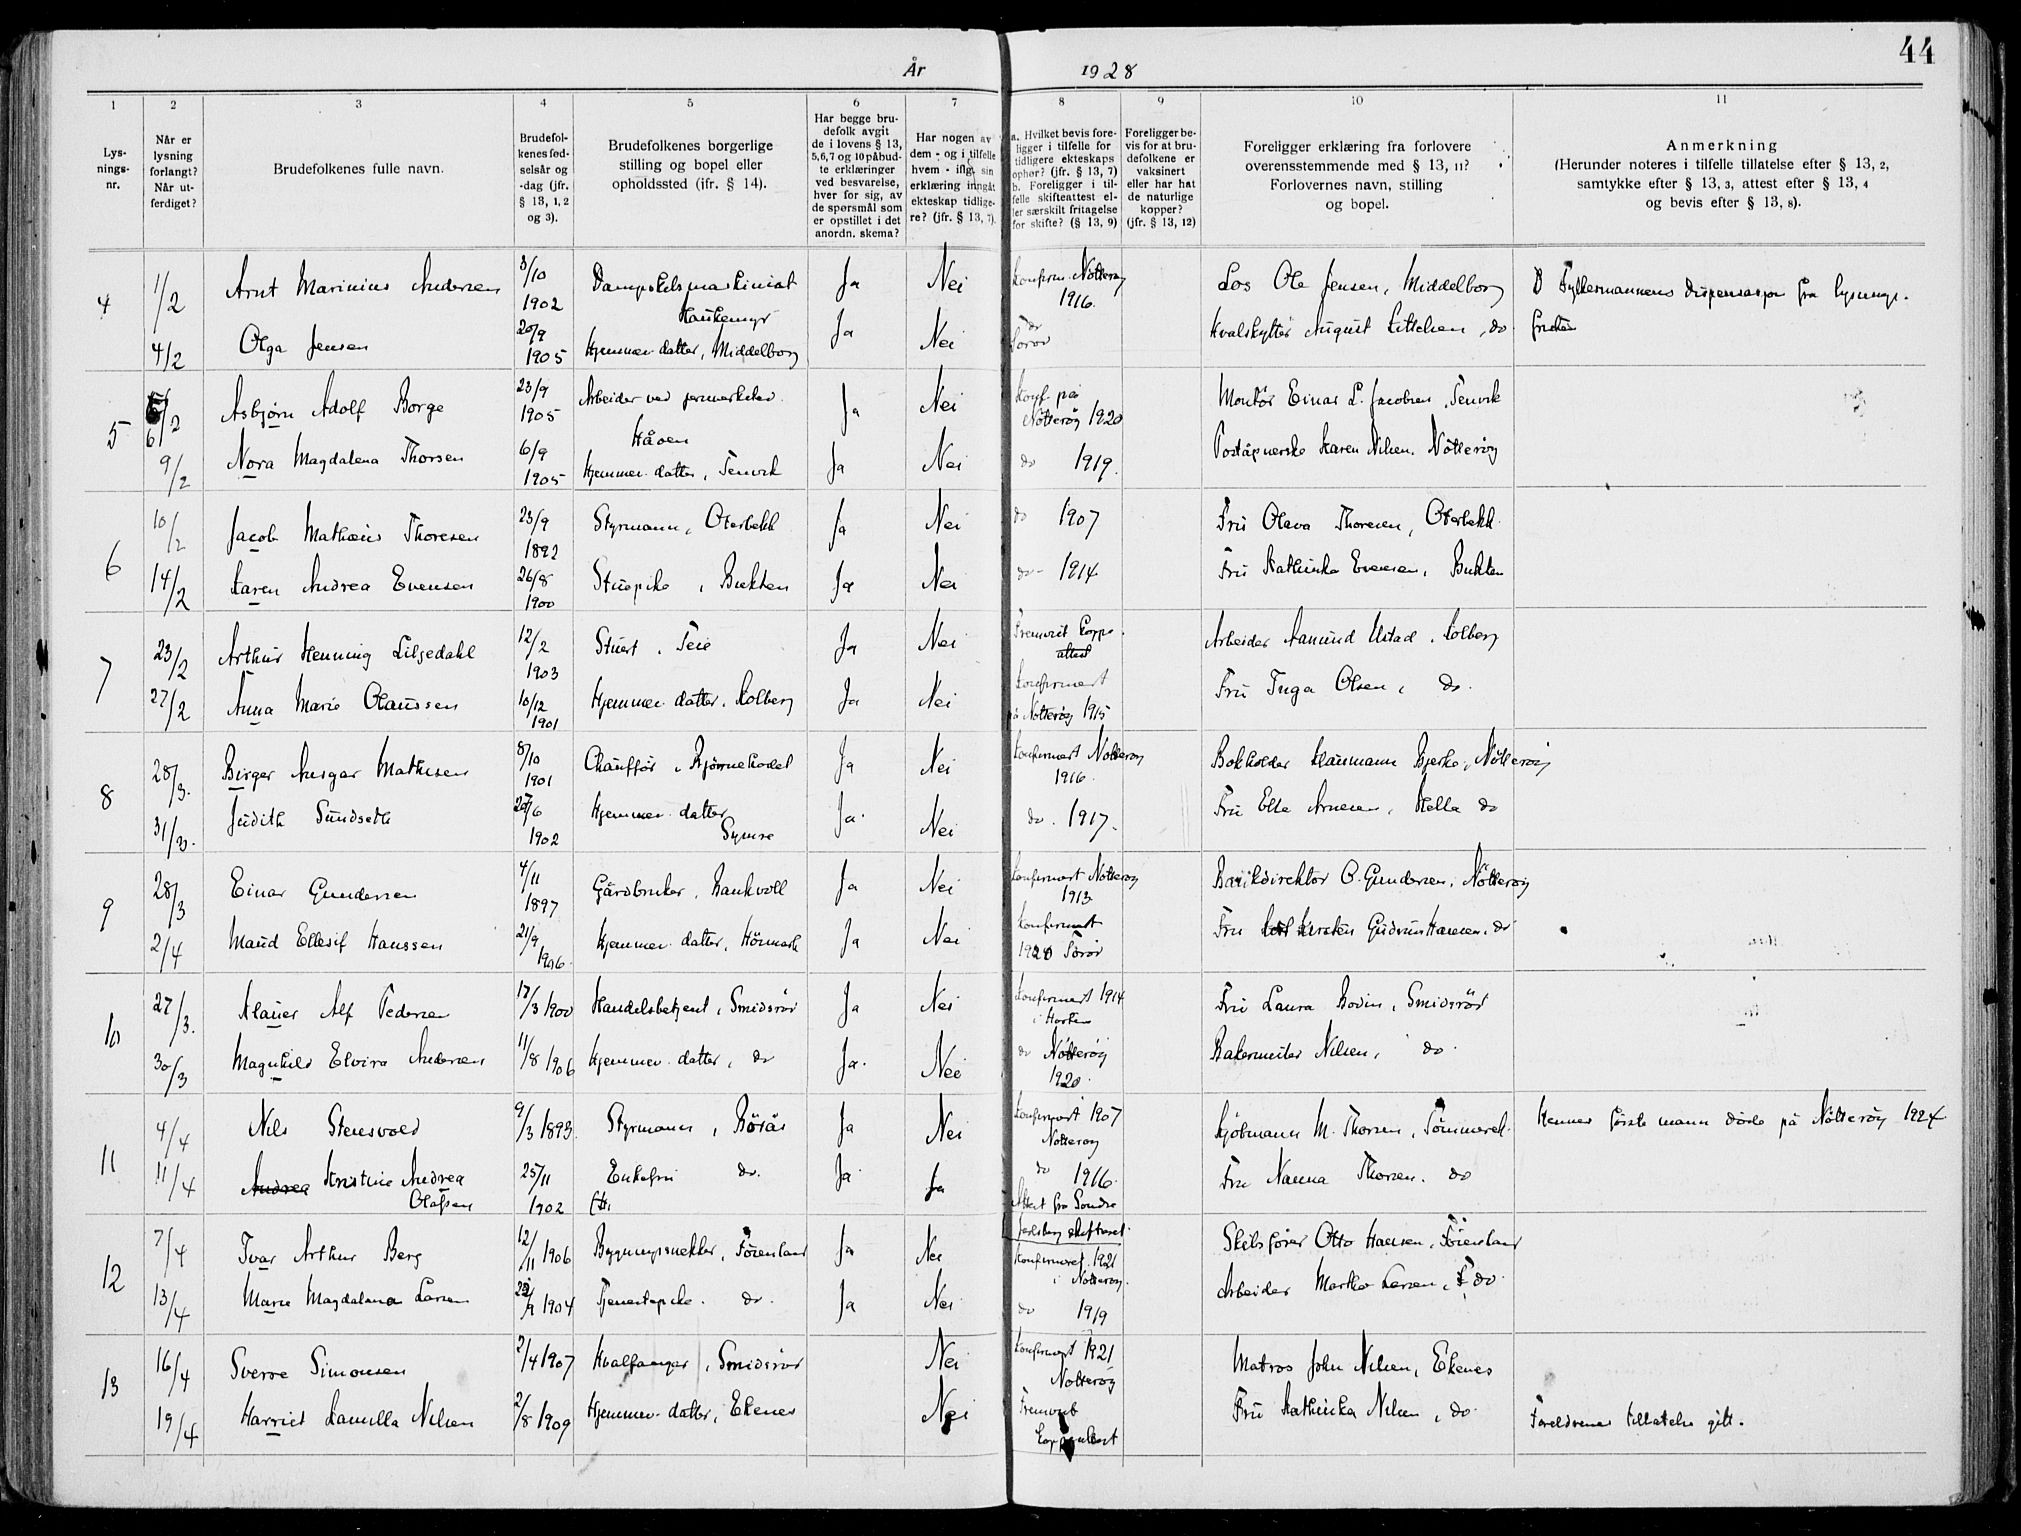 44
År 1928
1 2 3 4 5 6 7 8 9 10 11
Lys-
nings-
nr.
Når er
lysning
forlangt?
Når ut-
ferdiget?
Brudefolkenes fulle navn.
Brudefol-
kenes fød-
selsår og
-dag (jfr.
§ 13, 1, 2
og 3).
Brudefolkenes borgerlige
stilling og bopel eller
opholdssted (jfr. § 14).
Har begge bru-
defolk avgit
de i lovens § 13,
5,6,7 og 10 påbud-
te erklæringer
ved besvarelse,
hver for sig, av
de spørsmål som
er opstillet i det
anordn. skema?
Har nogen av
dem - og i tilfelle
hvem - iflg. sin
erklæring inngåt
ekteskap tidlige-
re? (jfr. § 13, 7).
a. Hvilket bevis fore-
ligger i tilfelle for
tidligere ekteskaps
ophør? (jfr. § 13, 7)
b. Foreligger i til-
felle skifteattest el-
ler særskilt fritagelse
for skifte? (§ 13, 9)
Foreligger be-
vis for at bru-
defolkene er
vaksinert
eller har hat
de naturlige
kopper?
(jfr. § 13, 12)
Foreligger erklæring fra forlovere
overensstemmende med § 13, 11?
Forlovernes navn, stilling
og bopel.
Anmerkning
(Herunder noteres i tilfelle tillatelse efter § 13, 2,
samtykke efter § 13, 3, attest efter § 13, 4
og bevis efter § 13, 8).
4 1/2 Arnt Marinius Andersen 3/10 1902 Dampskibsmaskinist Haukemyr Ja Nei Konfirm. Nøtterøy 1916. Los Ole Jensen, Middelborg Fylkesmannens dispensasjon fra lysnings-
4/2 Olga Jensen 20/9 1905 Hjemmev. datter, Middelborg Ja Nei do Hvalskytter August , do. fristen
5 6/2 Asbjørn Adolf Borge 23/9 1905 Arbeider ved Håoen Ja Nei Konf. på Nøtterøy 1920 Montør Einar L. Jacobsen, Tenvik
9/2 Nora Magdalena Thorsen 6/9 1905 Hjemmev. datter, Tenvik Ja Nei do 1919. Poståpnerske Karen Nilsen, Nøtterøy
6 10/2 Jacob Mathæus Thoresen 23/9 1892 Styrmann, Oterbekk Ja Nei do 1907 Fru Olava Thoresen, Oterbekk
14/2 Karen Andrea Evensen 26/8 1900 Stuepike, Bukten Ja Nei do 1914 Fru Kathinka Evensen, Bukten
7 23/2 Arthur Henning Liljedahl 12/2 1903 Stuert, Teie Ja Nei Fremvist Koppe- attest Arbeider Aamund Ulstad, Kolberg
27/2 Anna Marie Olaussen 10/12 1901 Hjemmev. datter, Kolberg Ja Nei Konfirmert på Nøtterøy 1915 Fru Inga Olsen, do.
8 28/3. Birger Ansgar Mathisen 8/10 1901 Chauffør, Ja Nei Konfirmert Nøtterøy 1916. Bokholder Klaumann Bjerke, Nøtterøy
31/3. Judith Sundseth 6 1902 Hjemmev. datter Symre Ja. Nei do. 1917. Fru Else Arnesen, Hella do
9 28/3 Einar Gundersen 4/11 1897 Gårdbruker, Bankvoll Ja Nei Konfirmert Nøtterøy 1913 Bankdirektør O. Gundersen, Nøtterøy
2/4 Maud Ellesif Hanssen 21/9 1906. Hjemmev. datter, Hørmark Ja Nei Konfirmert 1920 Fru Kirsten Gudrun Hansen, do
10 27/3. Klaues Alf Pedersen 17/3 1900 Handelsbetjent, Smidsrød Ja Nei Konfirmert 1914 i Horten Fru Laura Bodin, Smidsrød
30/3 Magnhild Elvira Andersen 11/8 1906 Hjemmev. datter, do Ja. Nei do Nøtterøy 1920. Bakermester Nilsen, do.
11 4/4 Nils Stensvold 9/3 1893. Styrmann, Råsås Ja Nei Konfirmert 1907 Nøtterøy Kjøbmann M. Thorsen, Sømmerel. Hennes første mann døde på Nøtterøy 1924
11/4 Andrea Kristine Andrea Olafsen 25/11 1902 Enkefru do. Ja Ja do 1916. Attest fra Søndre Jarlsberg skifterett. Fru Nanna Thorsen. do
12 7/4 Ivar Arthur Berg 12/11 1906 Bygningssnekker, Føienland Ja Nei Konfirmert 1921 i Nøtterøy. Skibsfører Otto Hansen, Føienland
13/4 Marie Magdalena Larsen 9 1904 Tjenestepike. do. Ja Nei do 1919 Arbeider Marthe Larsen, do.
13 16/4 Sverre Simonsen 2/4 1907 Hvalfanger, Smidsrød Nei Konfirmert 1921 Nøtterøy Matros John Nilsen, Ekenes
19/4 Harriet Kamilla Nilsen 2/8 1909 Hjemmev. datter, Ekenes Nei Fremvist Koppeattest Fru Kathinka Nilsen, do. Foreldrenes tillatelse gitt.